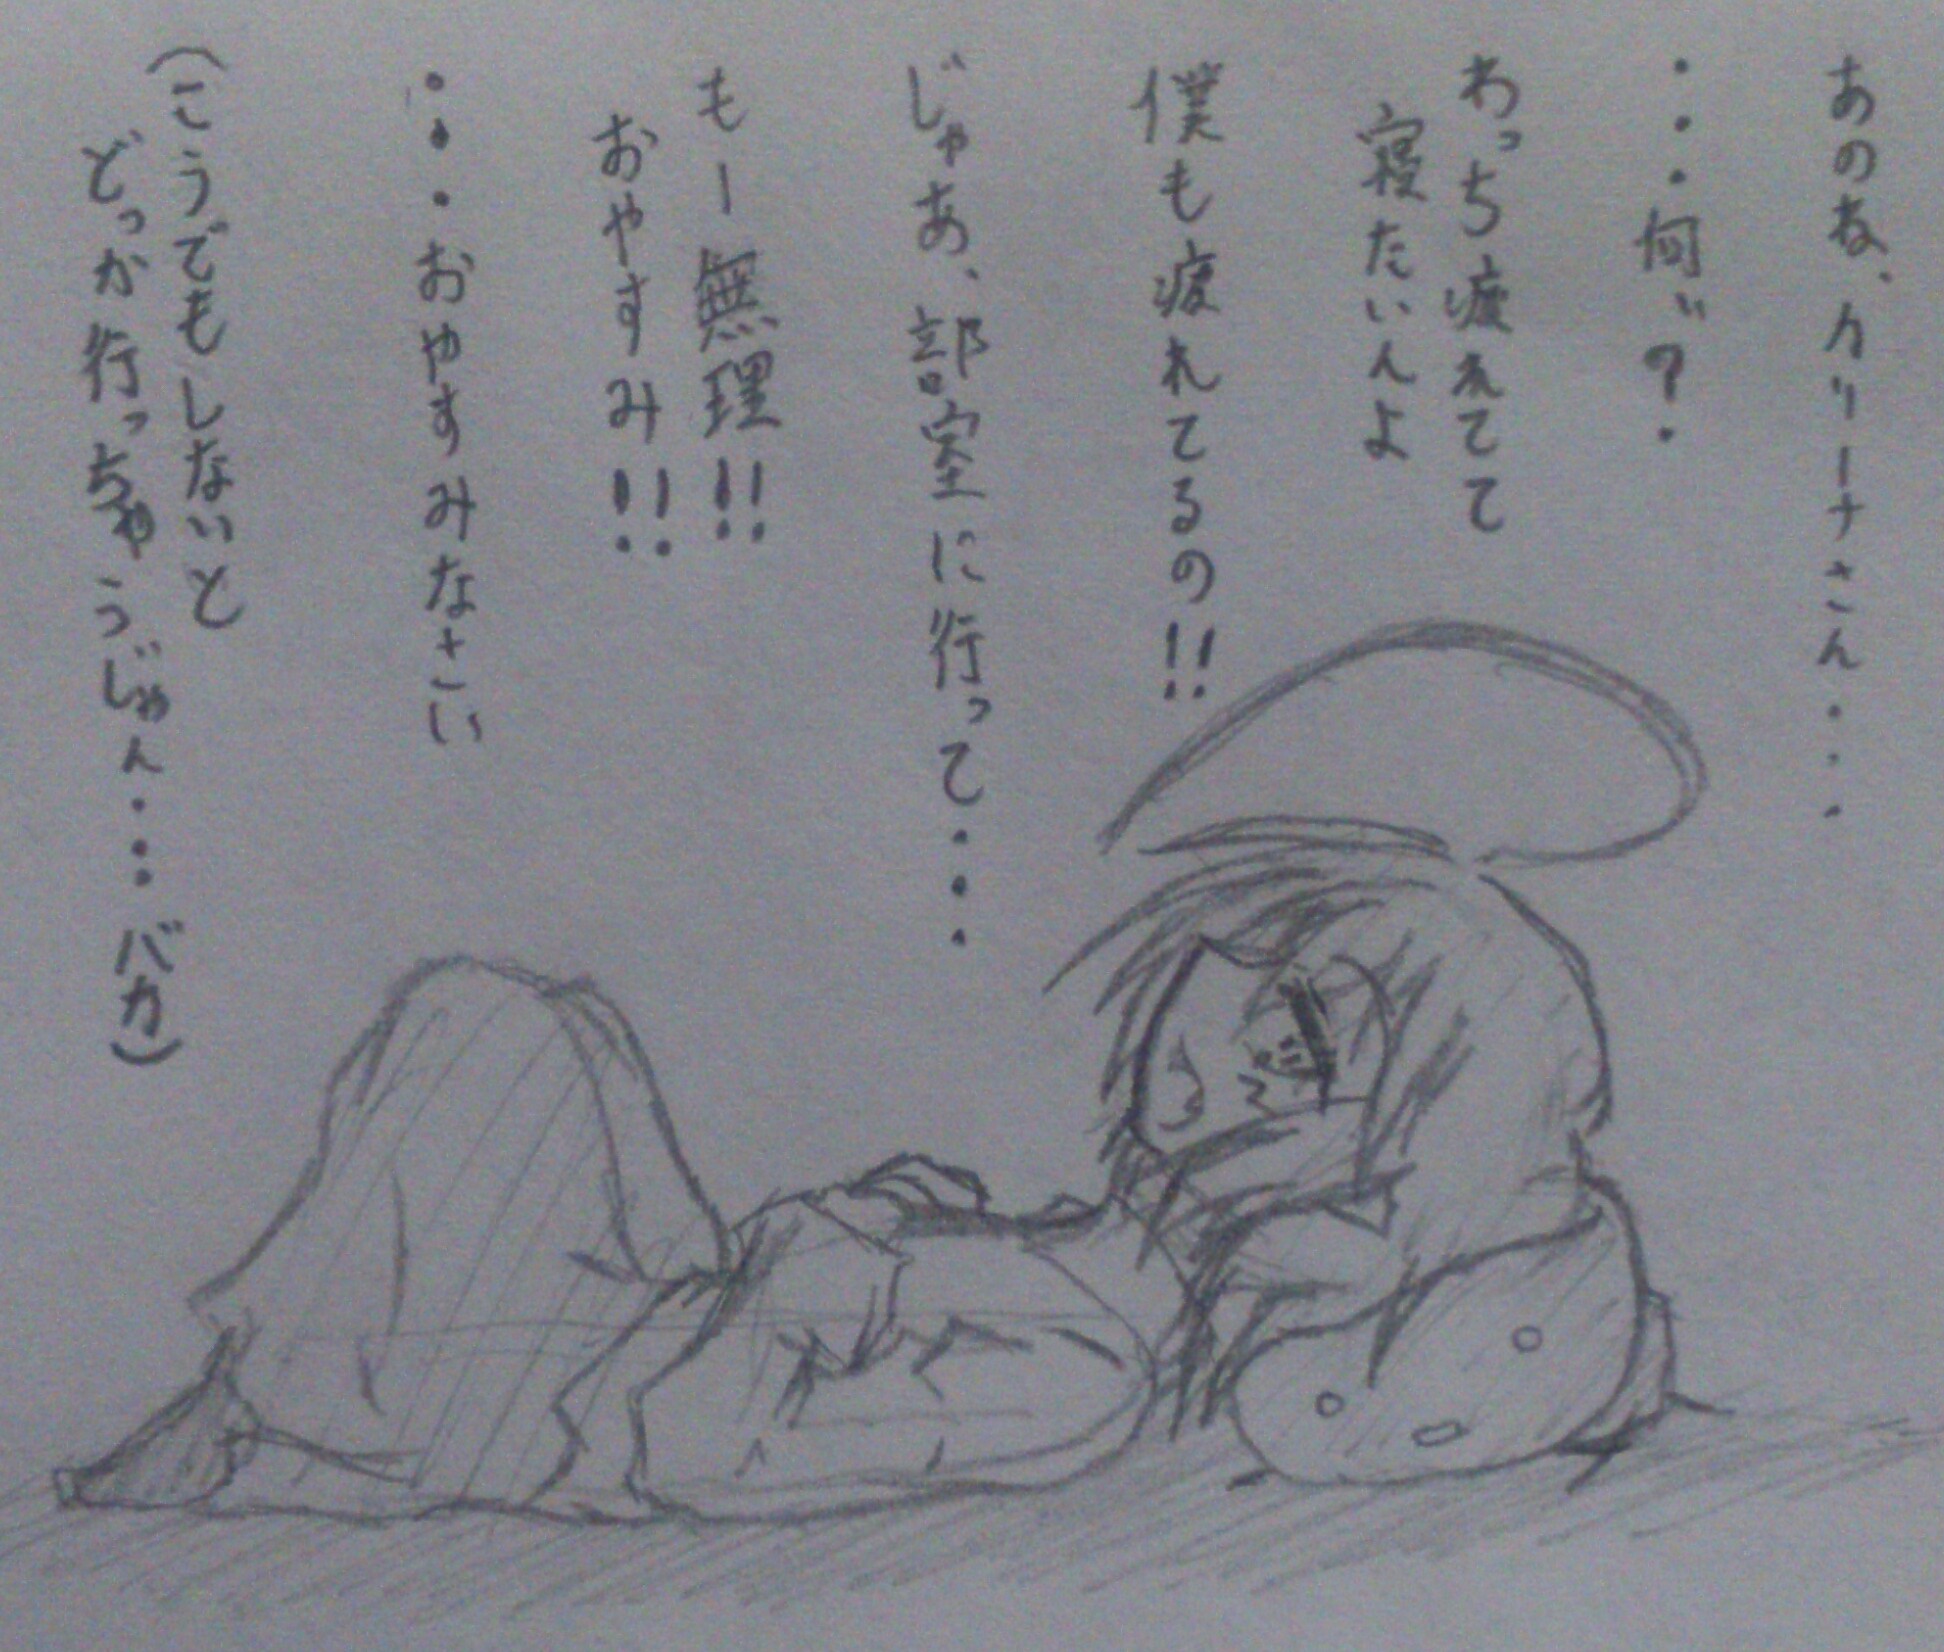 あのね、カリーナさん・・・
・・・何ぃ?・
わっち疲れてて
寝たいんよ
僕も疲れてるの!!
じゃあ、部室に行って・・・
もー無理!!
おやすみ!!
・・・おやすみなさい
(こうでもしないと
どっか行っちゃうじゃん・・・バカ)